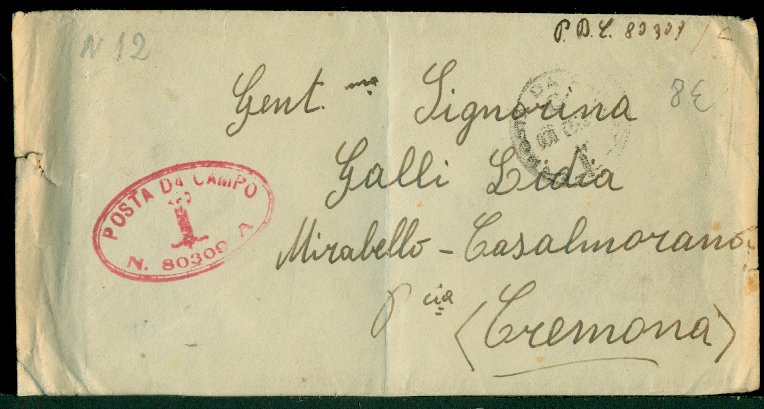 N 12
P. D. C. 80309 / C
83
Gent.ma Signorina
Galli Lidia
Mirabello - Casalmorano
pcia
(Cremona)
POSTA DA CAMPO
N. 80309 A
DA